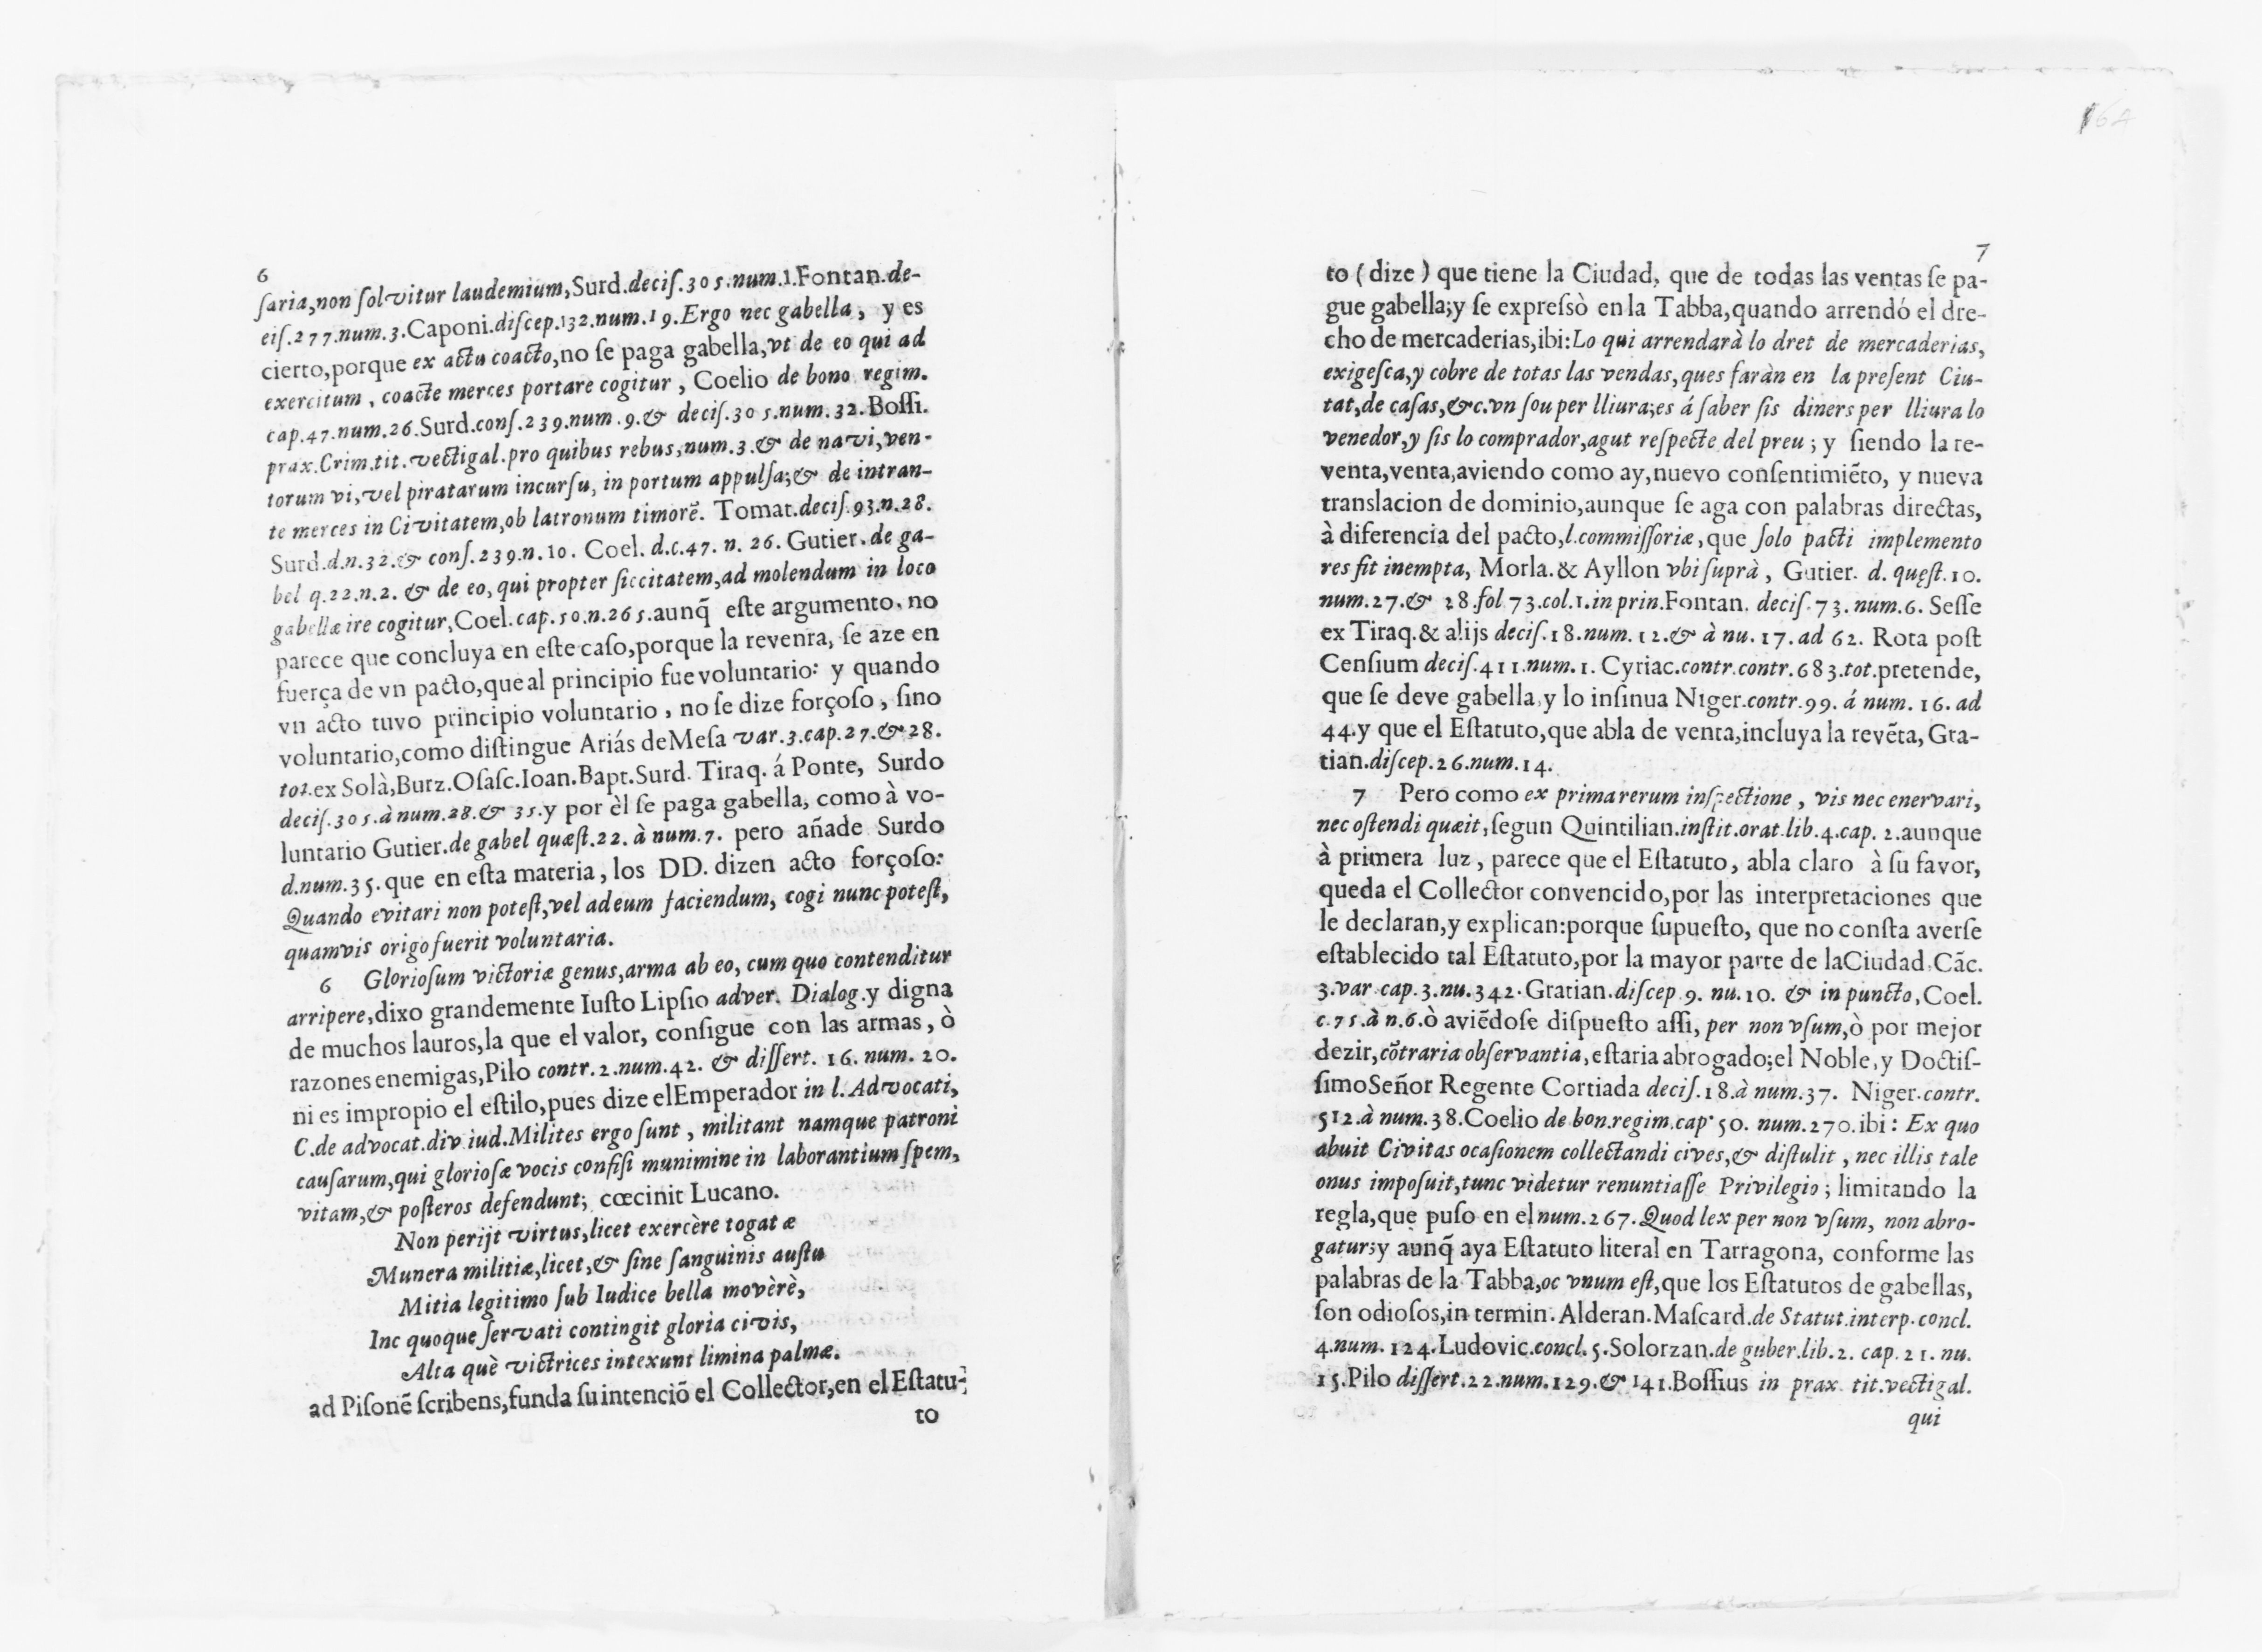 6
ſaria,non ſolvitur laudemium,Surd.deciſ.305.num.1.Fontan.de-
eiſ.277.num.3.Caponi.diſcep.132.num.19.Ergo nec gabella, y es
cierto,porque ex actu coacto,no ſe paga gabella,vt de eo qui ad
exercitum, coacte merces portare cogitur, Coelio de bono regim.
cap.47.num.26.Surd.conſ.239.num.9.& deciſ.305.num.32.Boſſi.
prax.Crim.tit.vectigal.pro quibus rebus,num.3.& de navi,ven-
torum vi,vel piratarum incurſu, in portum appulſa;& de intran-
te merces in Civitatem,ob latronum timorẽ. Tomat.deciſ.93.n.28.
Surd.d.n.32.& conſ.239.n.10. Coel. d.c.47. n. 26. Gutier. de ga-
bel q.22.n.2. & de eo, qui propter ſiccitatem,ad molendum in loco
gabellæ ire cogitur,Coel.cap.50.n.265.aunq̃ eſte argumento, no
parece que concluya en eſte caſo,porque la reventa, ſe aze en
fuerça de vn pacto,que al principio fue voluntario: y quando
vn acto tuvo principio voluntario, no ſe dize forçoſo, ſino
voluntario,como diſtingue Ariás de Meſa var.3.cap.27.& 28.
tot.ex Solà,Burz.Oſaſc.Ioan.Bapt.Surd. Tiraq. á Ponte, Surdo
deciſ.305.à num.28.& 35.y por èl ſe paga gabella, como à vo-
luntario Gutier.de gabel quæſt.22. à num.7. pero añade Surdo
d.num.35. que en eſta materia, los DD. dizen acto forçoſo:
Quando evitari non poteſt,vel ad eum faciendum, cogi nunc poteſt,
quamvis origo fuerit voluntaria.
6 Glorioſum victoriæ genus,arma ab eo, cum quo contenditur
arripere,dixo grandemente Iuſto Lipſio adver. Dialog.y digna
de muchos lauros,la que el valor, conſigue con las armas, ò
razones enemigas,Pilo contr.2.num.42. & diſſert. 16. num. 20.
ni es impropio el eſtilo,pues dize el Emperador in l. Advocati,
C.de advocat.div iud.Milites ergo ſunt, militant namque patroni
cauſarum,qui glorioſæ vocis confiſi munimine in laborantium ſpem,
vitam,& poſteros defendunt; cœcinit Lucano.
Non perijt virtus,licet exercère togatæ
Munera militiæ,licet,& ſine ſanguinis auſtu
Mitia legitimo ſub Iudice bella movèrè,
Inc quoque ſervati contingit gloria civis,
Alta què victrices intexunt limina palmæ.
ad Piſonẽ ſcribens,funda ſu intenciõ el Collector,en el Eſtatu-
to
7
to (dize) que tiene la Ciudad, que de todas las ventas ſe pa-
gue gabella;y ſe expreſsò en la Tabba,quando arrendó el dre-
cho de mercaderias,ibi:Lo qui arrendarà lo dret de mercaderias,
exigeſca,y cobre de totas las vendas,ques faràn en la preſent Ciu-
tat,de caſas,&c.vn ſou per lliura;es á ſaber ſis diners per lliura lo
venedor,y ſis lo comprador,agut reſpecte del preu; y ſiendo la re-
venta,venta,aviendo como ay,nuevo conſentimiẽto, y nueva
translacion de dominio,aunque ſe aga con palabras directas,
à diferencia del pacto,l.commiſſoriæ,que ſolo pacti implemento
res fit inempta, Morla.& Ayllon vbi ſuprà, Gutier. d. quęſt.10.
num.27.& 28.fol 73.col.1.in prin.Fontan. deciſ.73.num.6. Seſſe
ex Tiraq.& alijs deciſ.18.num.12.& à nu. 17. ad 62. Rota poſt
Cenſium deciſ.411.num.1. Cyriac.contr.contr.683.tot.pretende,
que ſe deve gabella,y lo inſinua Niger.contr.99. á num. 16. ad
44.y que el Eſtatuto,que abla de venta,incluya la revẽta, Gra-
tian.diſcep.26.num.14.
7 Pero como ex prima rerum inſpectione, vis nec enervari,
nec oſtendi quæit,ſegun Quintilian.inſtit.orat.lib.4.cap. 2.aunque
à primera luz, parece que el Eſtatuto, abla claro à ſu favor,
queda el Collector convencido,por las interpretaciones que
le declaran,y explican:porque ſupueſto, que no conſta averſe
eſtablecido tal Eſtatuto,por la mayor parte de la Ciudad, Cãc.
3.var cap.3.nu.342.Gratian.diſcep 9. nu.10. & in puncto,Coel.
c.75.à n.6.ò aviẽdoſe diſpueſto aſſi, per non vſum,ò por mejor
dezir,cõtraria obſervantia,eſtaria abrogado;el Noble,y Doctiſ-
ſimo Señor Regente Cortiada deciſ.18.à num.37. Niger.contr.
512.à num.38.Coelio de bon.regim.cap. 50. num.270.ibi: Ex quo
abuit Civitas ocaſionem collectandi cives,& diſtulit, nec illis tale
onus impoſuit,tunc videtur renuntiaſſe Privilegio; limitando la
regla,que puſo en el num.267.Quod lex per non vſum, non abro-
gatur;y aunq̃ aya Eſtatuto literal en Tarragona, conforme las
palabras de la Tabba,oc vnum eſt,que los Eſtatutos de gabellas,
ſon odioſos,in termin. Alderan.Maſcard.de Statut.interp.concl.
4.num. 124.Ludovic.concl.5.Solorzan.de guber.lib.2. cap.21. nu.
15.Pilo diſſert.22.num.129.& 141.Boſſius in prax tit.vectigal.
qui